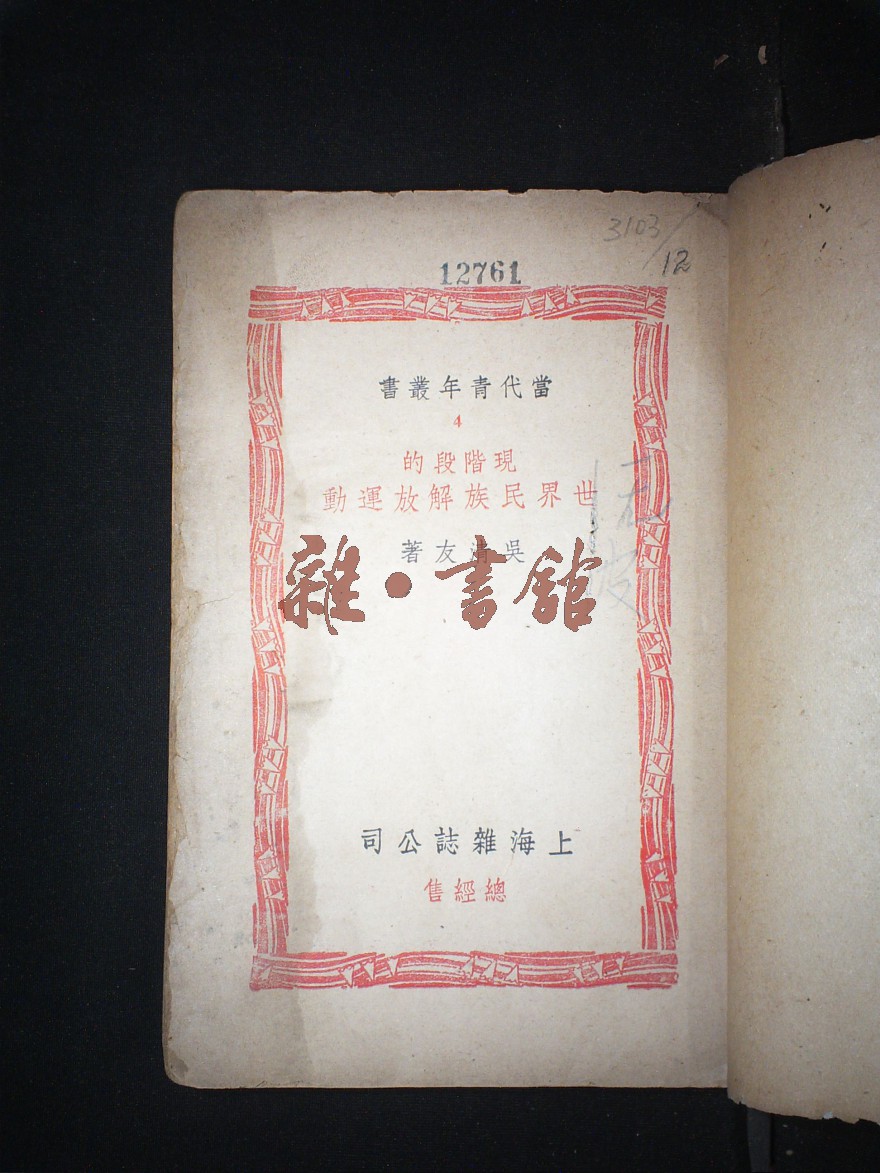 3103/12
12761
當代青年叢書
4
現階段的
世界民族解放運動
吳清友著
雜·書館
上海雜誌公司
總經售